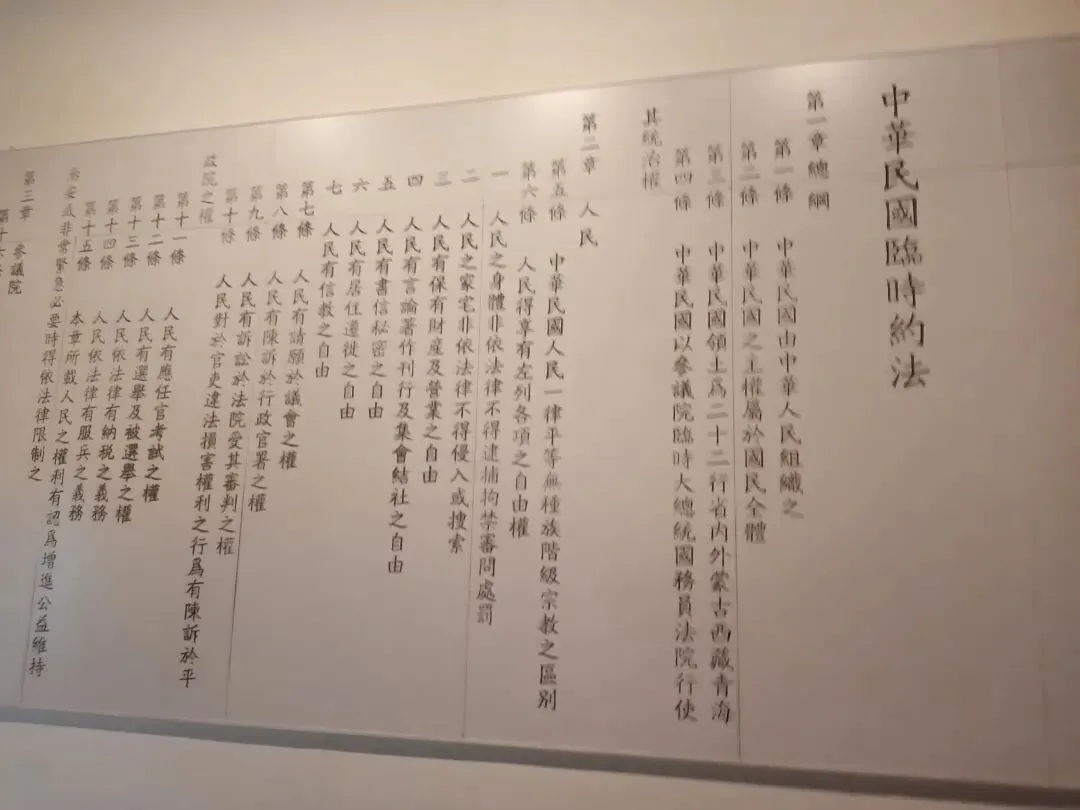 中華民國臨時約法
第一章 總綱
第一條 中華民國由中華人民組織之
第二條 中華民國之主權屬於國民全體
第三條 中華民國領土爲二十二行省內外蒙古西藏青海
第四條 中華民國以參議院臨時大總統國務員法院行使
其統治權
第二章 人民
第五條 中華民國人民一律平等無種族階級宗教之區別
第六條 人民得享有左列各項之自由權
一 人民之身體非依法律不得逮捕拘禁審問處罰
二 人民之家宅非依法律不得侵入或搜索
三 人民有保有財産及營業之自由
四 人民有言論著作刊行及集會結社之自由
五 人民有書信秘密之自由
六 人民有居住遷徙之自由
七 人民有信教之自由
第七條 人民有請願於議會之權
第八條 人民有陳訴於行政官署之權
第九條 人民有訴訟於法院受其審判之權
第十條 人民對於官吏違法損害權利之行爲有陳訴於平
政院之權
第十一條 人民有應任官考試之權
第十二條 人民有選舉及被選舉之權
第十三條 人民依法律有納税之義務
第十四條 人民依法律有服兵之義務
第十五條 本章所載人民之權利有認爲增進公益維持
治安或非常緊急必要時得依法律限制之
第三章 參議院